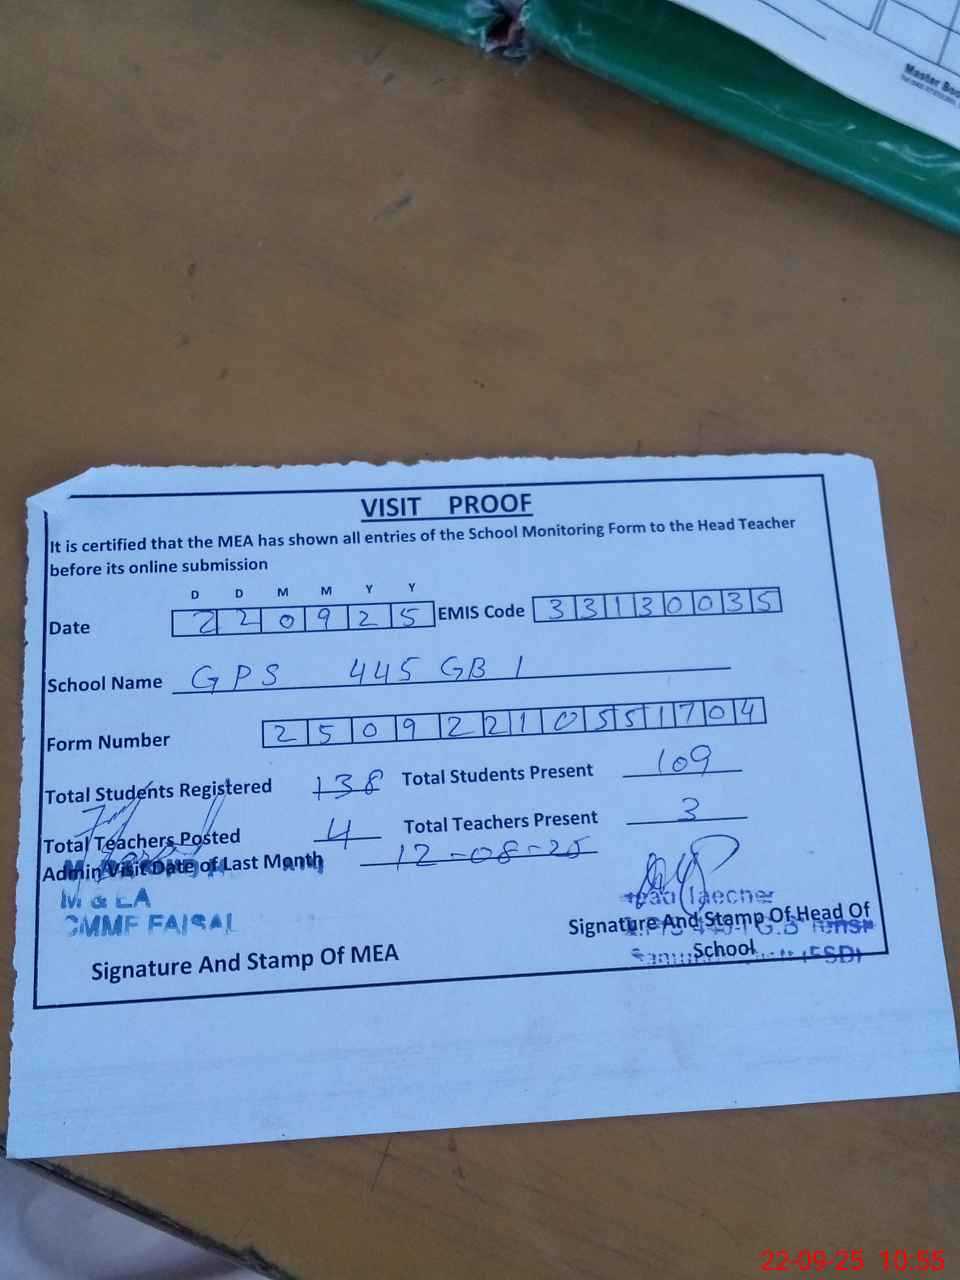 Master Boo
VISIT PROOF
It is certified that the MEA has shown all entries of the School Monitoring Form to the Head Teacher
before its online submission
D D M M Y Y
Date 2 2 0 9 2 5 EMIS Code 3 3 1 3 0 0 3 5
School Name GPS 445 GB 1
Form Number 2 5 0 9 2 2 1 0 5 5 1 7 0 4
Total Students Registered 138 Total Students Present 109
Total Teachers Posted 4 Total Teachers Present 3
Admin Visit Date of Last Month 12-08-25
M & EA
CMMF FAISAL
Signature And Stamp Of MEA
Head Teacher
Signature And Stamp Of Head Of
School
(FSD)
22-09-25 10:55